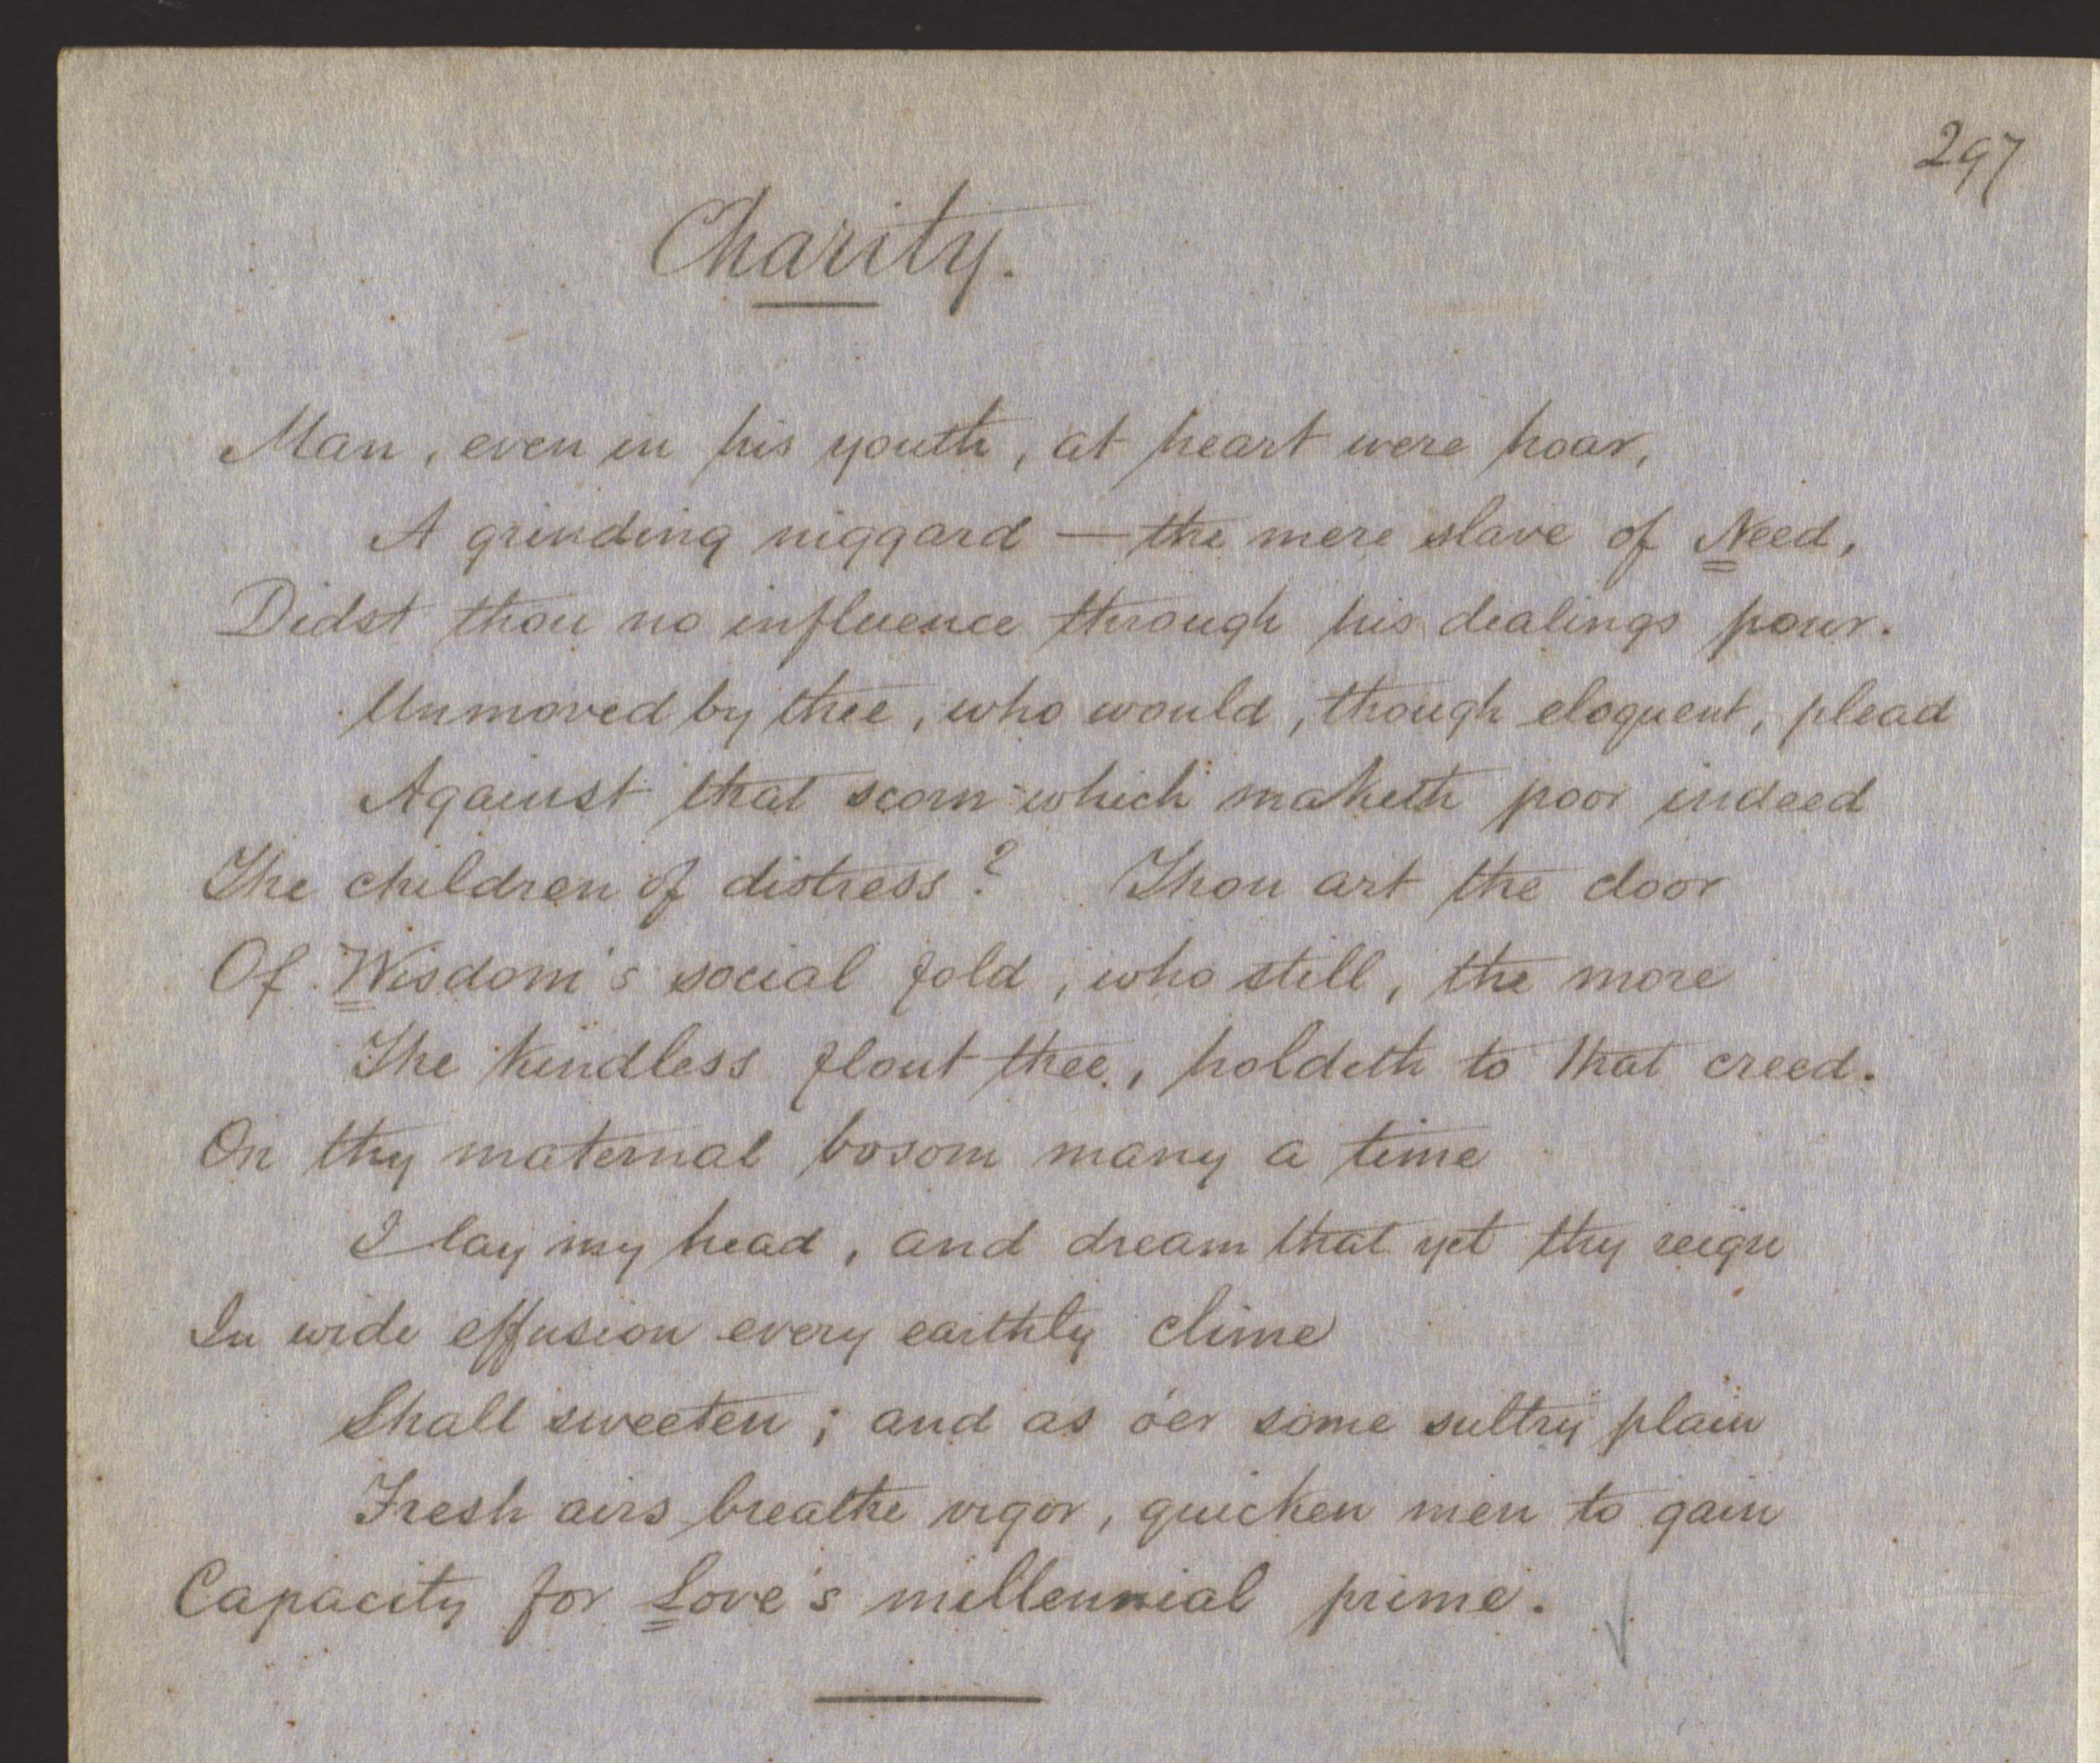 297
Charity.
Man, even in his youth, at heart were hoar,
A grinding niggard — the mere slave of Need,
Didst thou no influence through his dealings pour.
Unmoved by thee, who would, though eloquent, plead
Against that scorn which maketh poor indeed
The children of distress? Thou art the door
Of Wisdom's social fold, who still, the more
The kindless flout thee, holdeth to that creed.
On thy maternal bosom many a time
I lay my head, and dream that yet thy reign
In wide effusion every earthly clime
Shall sweeten; and as o'er some sultry plain
Fresh airs breathe vigor, quicken men to gain
Capacity for Love's millennial prime.